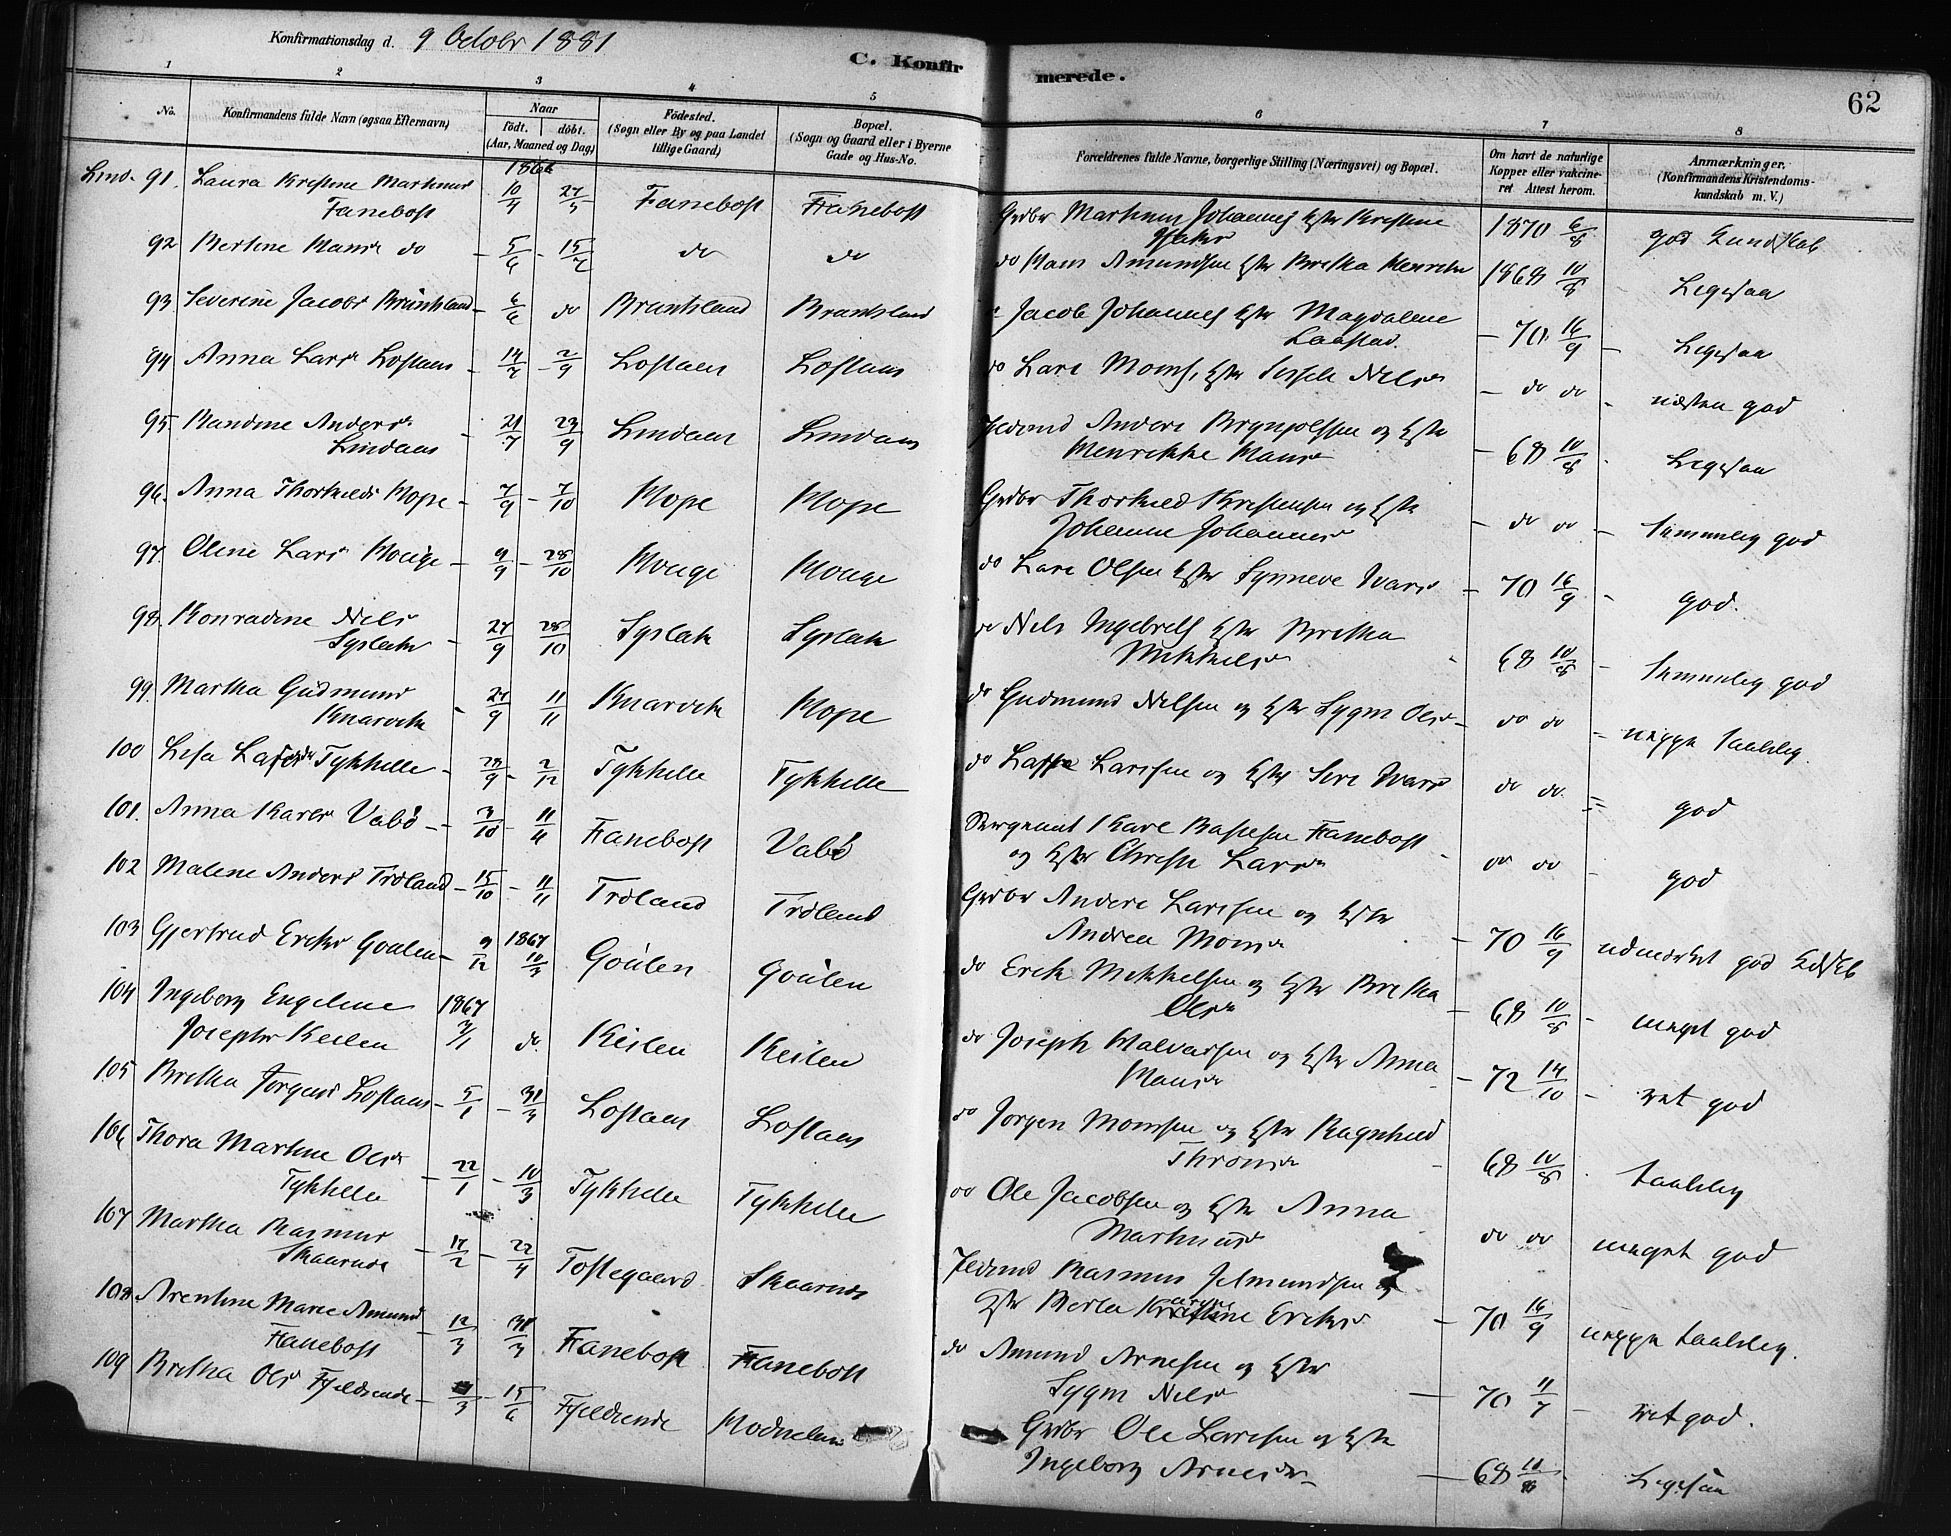 Konfirmationsdag d. 9 Octobr 1881
C. Konfirmerede.
62
1 2 3 4 5 6 7 8
No.
Konfirmandens fulde Navn (ogsaa Efternavn)
Naar
födt. döbt.
(Aar, Maaned og Dag)
Födested.
(Sogn eller By og paa Landet tillige Gaard)
Bopæl.
(Sogn og Gaard eller i Byerne Gade og Hus-No.
Forældrenes fulde Navne, borgerlige Stilling (Næringsvei) og Bopæl.
Om havt de naturlige Kopper eller vakcineret Attest herom.
Anmærkninger,
(Konfirmandens Kristendomskundskab m. V.)
1866
Lind. 91. Laura Kristine Markus Fanebost 10/4 27/5 Fanebost Fanebost Grdbr Markus Johannes Hstr Kristine 1870 6/8 god Kundskab
92 Bertine Hans do 5/6 15/7 do do do Hans Amundsen Hstr Britha Henriks 1868 10/8 Ligesaa
93 Severine Jacobs Bruntsland 6/6 do Bruntsland Bruntsland Jacob Johannes Hstr Magdalene 70 16/9 Ligesaa
94 Anna Lars Loftaas 14/7 2/9 Loftaas Loftaas do Lars Moms. Hstr Sissele Nels do do næsten god
95 Handine Anders Lindaas 21/7 23/9 Lindaas Lindaas Anders Brynjolfsen og Hstr Henrikke Hans 68 10/8 Ligesaa
96. Anna Thorkilds Hope 7/9 7/10 Hope Hope Grdbr Thorkild Kristensen og Hstr Johanne Johannes do do temmelig god
97. Oline Lars Houge 9/9 28/10 Houge Houge do Lars Olsen Hstr Synneve Ivars 70 16/9 god.
98. Konradine Nels Syslak 27/9 28/10 Syslak Syslak do Nels Ingebrets Hstr Britha Mikkels 68 10/8 temmelig god
99. Martha Gudmunds Knarvik 27/9 11/11 Knarvik Hope do Gudmund Nelsen og Hstr Sygni Ols do do neppe taalelig
100 Lisa Tykhelle 29/9 2/12 Tykhelle Tykhelle do Lasse Larssen og Hstr Siri Ivars do do god
101. Anna Karls Vabø 3/10 11/11 Fanebost Vabø Sergeant Karl Fanebost og Hstr Christi Lars do do god
102 Malene Anders Troland 15/10 11/11 Troland Troland Grdbr Anders Larssen og Hstr Andrea Moms 70 16/9 udmærket god
103 Gjertrud Eriks Goulen 9/12 1867 10/3 Goulen Goulen do Erik Mikkelsen og Hstr Britha Ols 68 10/8 meget god
104 Ingeborg Engeline Josephs Keilen 1867 3/1 do Keilen Keilen do Joseph Halvarsen og Hstr Anna Hans 72 14/10 ret god
105 Britha Jørgens Loftaas 5/1 31/3 Loftaas Loftaas do Jørgen Momsen og Hstr Ragnhild Throns 68 10/8 taalelig
106 Thora Martine Ols Tykhelle 22/1 10/3 Tykhelle Tykhelle do Ole Jacobsen og Hstr Anna Markus do do meget god
107 Martha Rasmus Skaarnes 17/2 22/4 Toftegaard Skaarnes Rasmus Jelmundsen og Hstr Berta Eriks 70 16/9 neppe taalelig.
108 Arentine Marie Amund Fanebost 12/3 31/3 Fanebost Fanebost do Amund Arnesen og Hstr Sygni Nels 70 11/7 ret god.
109 Britha Ols Fjeldsende 15/6 Fjeldsende Grdbr Ole Larssen og Hstr Ingeborg Arnes 68 10/8 Ligesaa